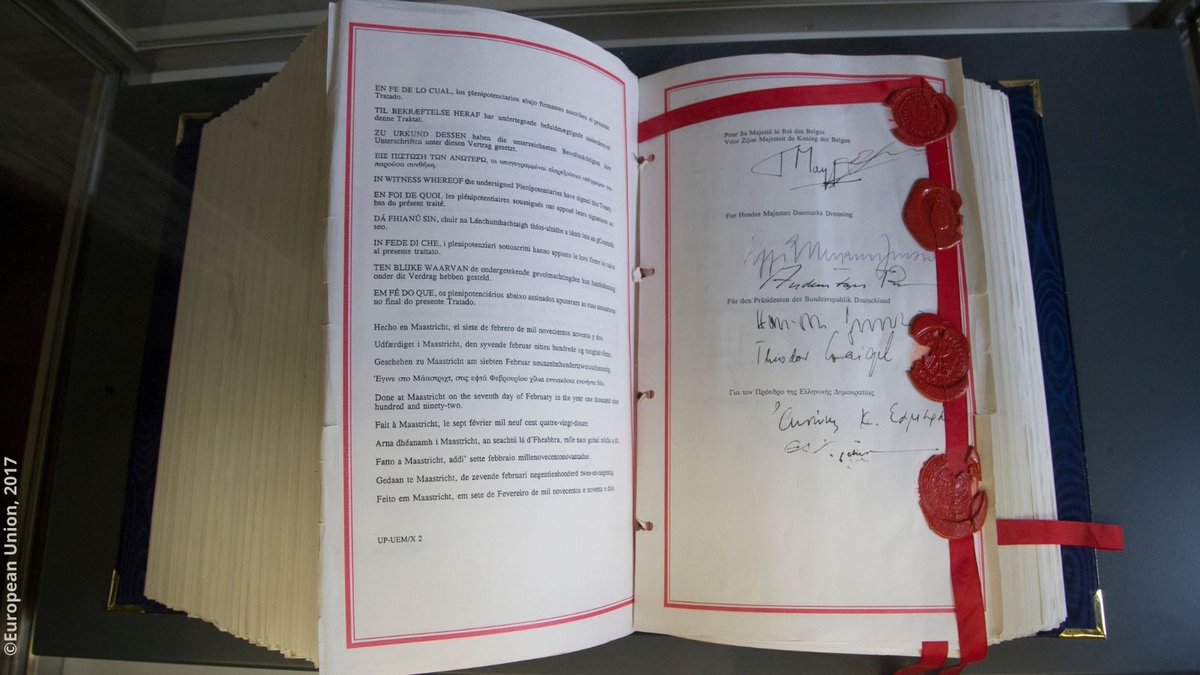 EN FE DE LO CUAL, los plenipotenciarios abajo firmantes suscriben el presente
Tratado.
TIL BEKRÆFTELSE HERAF har undertegnede befuldmægtigede underskrevet
denne Traktat.
ZU URKUND DESSEN haben die unterzeichneten Bevollmächtigten ihre
Unterschriften unter diesen Vertrag gesetzt.
ΕΙΣ ΠΙΣΤΩΣΗ ΤΩΝ ΑΝΩΤΕΡΩ, οι υπογεγραμμένοι πληρεξούσιοι υπέγραψαν την
παρούσα συνθήκη.
IN WITNESS WHEREOF the undersigned Plenipotentiaries have signed this Treaty.
EN FOI DE QUOI, les plénipotentiaires soussignés ont apposé leurs signatures au
bas du présent traité.
DÁ FHIANÚ SIN, chuir na Lánchumhachtaigh thíos-sínithe a lámh leis an gConradh
seo.
IN FEDE DI CHE, i plenipotenziari sottoscritti hanno apposto le loro firme in calce
al presente trattato.
TEN BLIJKE WAARVAN de ondergetekende gevolmachtigden hun handtekening
onder dit Verdrag hebben gesteld.
EM FÉ DO QUE, os plenipotenciários abaixo assinados apuseram as suas assinaturas
no final do presente Tratado.
Hecho en Maastricht, el siete de febrero de mil novecientos noventa y dos.
Udfærdiget i Maastricht, den syvende februar nitten hundrede og tooghalvfems.
Geschehen zu Maastricht am siebten Februar neunzehnhundertzweiundneunzig.
Έγινε στο Μάαστριχτ, στις εφτά Φεβρουαρίου χίλια εννιακόσια ενενήντα δύο.
Done at Maastricht on the seventh day of February in the year one thousand nine
hundred and ninety-two.
Fait à Maastricht, le sept février mil neuf cent quatre-vingt-douze.
Arna dhéanamh i Maastricht, an seachtú lá d'Fheabhra, míle naoi gcéad nócha a dó.
Fatto a Maastricht, addi' sette febbraio millenovecentonovantadue.
Gedaan te Maastricht, de zevende februari negentienhonderd twee-en-negentig.
Feito em Maastricht, em sete de Fevereiro de mil novecentos e noventa e dois.
UP-UEM/X 2
Pour Sa Majesté le Roi des Belges
Voor Zijne Majesteit de Koning der Belgen
For Hendes Majestæt Danmarks Dronning
Für den Präsidenten der Bundesrepublik Deutschland
Theodor Waigel
Για τον Πρόεδρο της Ελληνικής Δημοκρατίας
©European Union, 2017